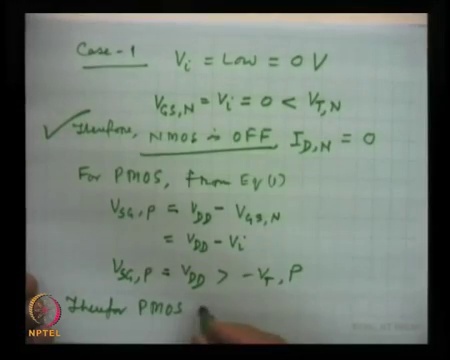 Case-1 Vi = Low = 0 V
VGS,N = Vi = 0 < VT,N
✓ Therefore, NMOS is OFF, ID,N = 0
For PMOS, from Eq(1)
VSG,P = VDD - VGS,N
= VDD - Vi
VSG,P = VDD > -VT,P
Therefor PMOS
NPTEL